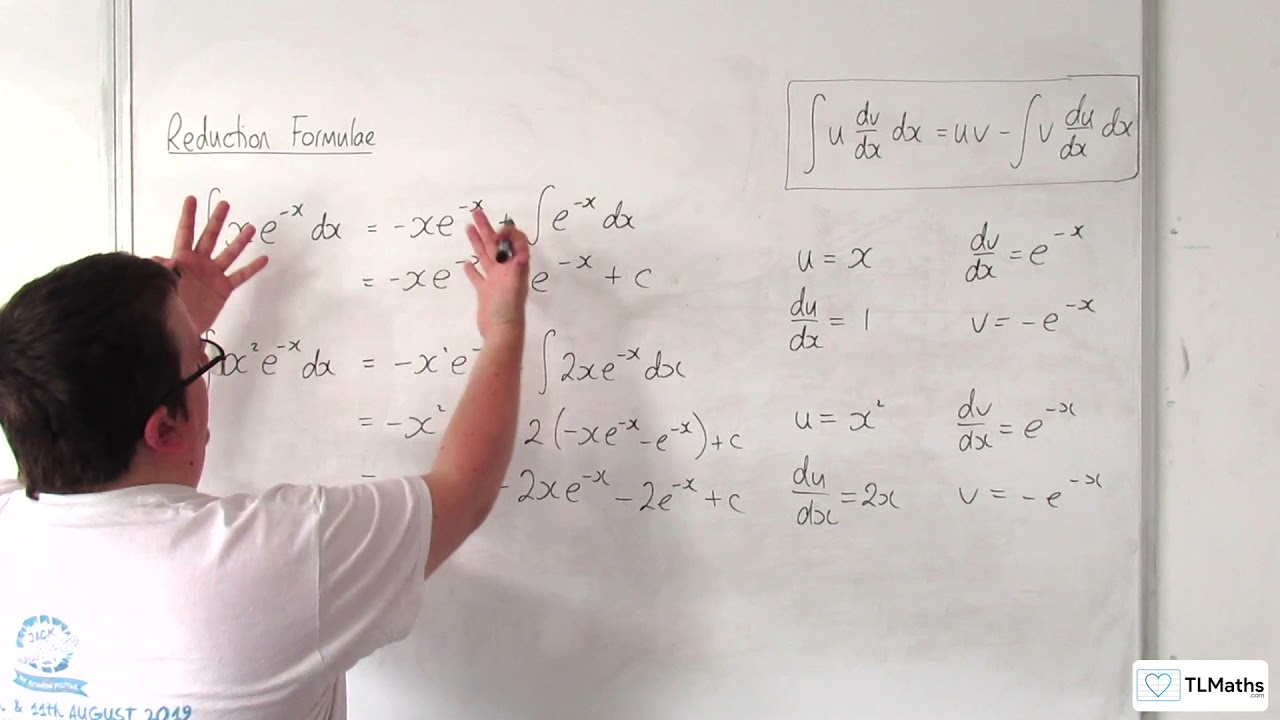 Reduction Formulae
∫ u dv/dx dx = uv - ∫ v du/dx dx
∫ x e^-x dx = -xe^-x + ∫ e^-x dx
= -xe^- e^-x + c
u = x dv/dx = e^-x
du/dx = 1 v = -e^-x
∫ x² e^-x dx = -x e^- ∫ 2xe^-x dx
= -x² 2(-xe^-x - e^-x) + c
- 2xe^-x - 2e^-x + c
u = x² dv/dx = e^-x
du/dx = 2x v = -e^-x
JACK
& 11th AUGUST 2019
TLMaths
.com